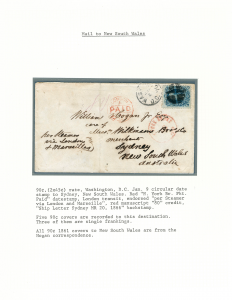 Mail to New South Wales
PAID
William Hogan Jr Esq
care of
Messrs Wilkinson Brothers
merchant
Sydney
New South Wales
Australia
per Steamer
via London
& Marseilles
90c.(2x45c) rate, Washington, D.C. Jan. 8 circular date
stamp to Sydney, New South Wales. Red "N. York Br. Pkt.
Paid" datestamp, London transit, endorsed "per Steamer
via London and Marseille", red manuscript "80" credit,
"Ship Letter Sydney MR 20, 1866" backstamp.
Five 90c covers are recorded to this destination.
Three of them are single frankings.
All 90c 1861 covers to New South Wales are from the
Hogan correspondence.